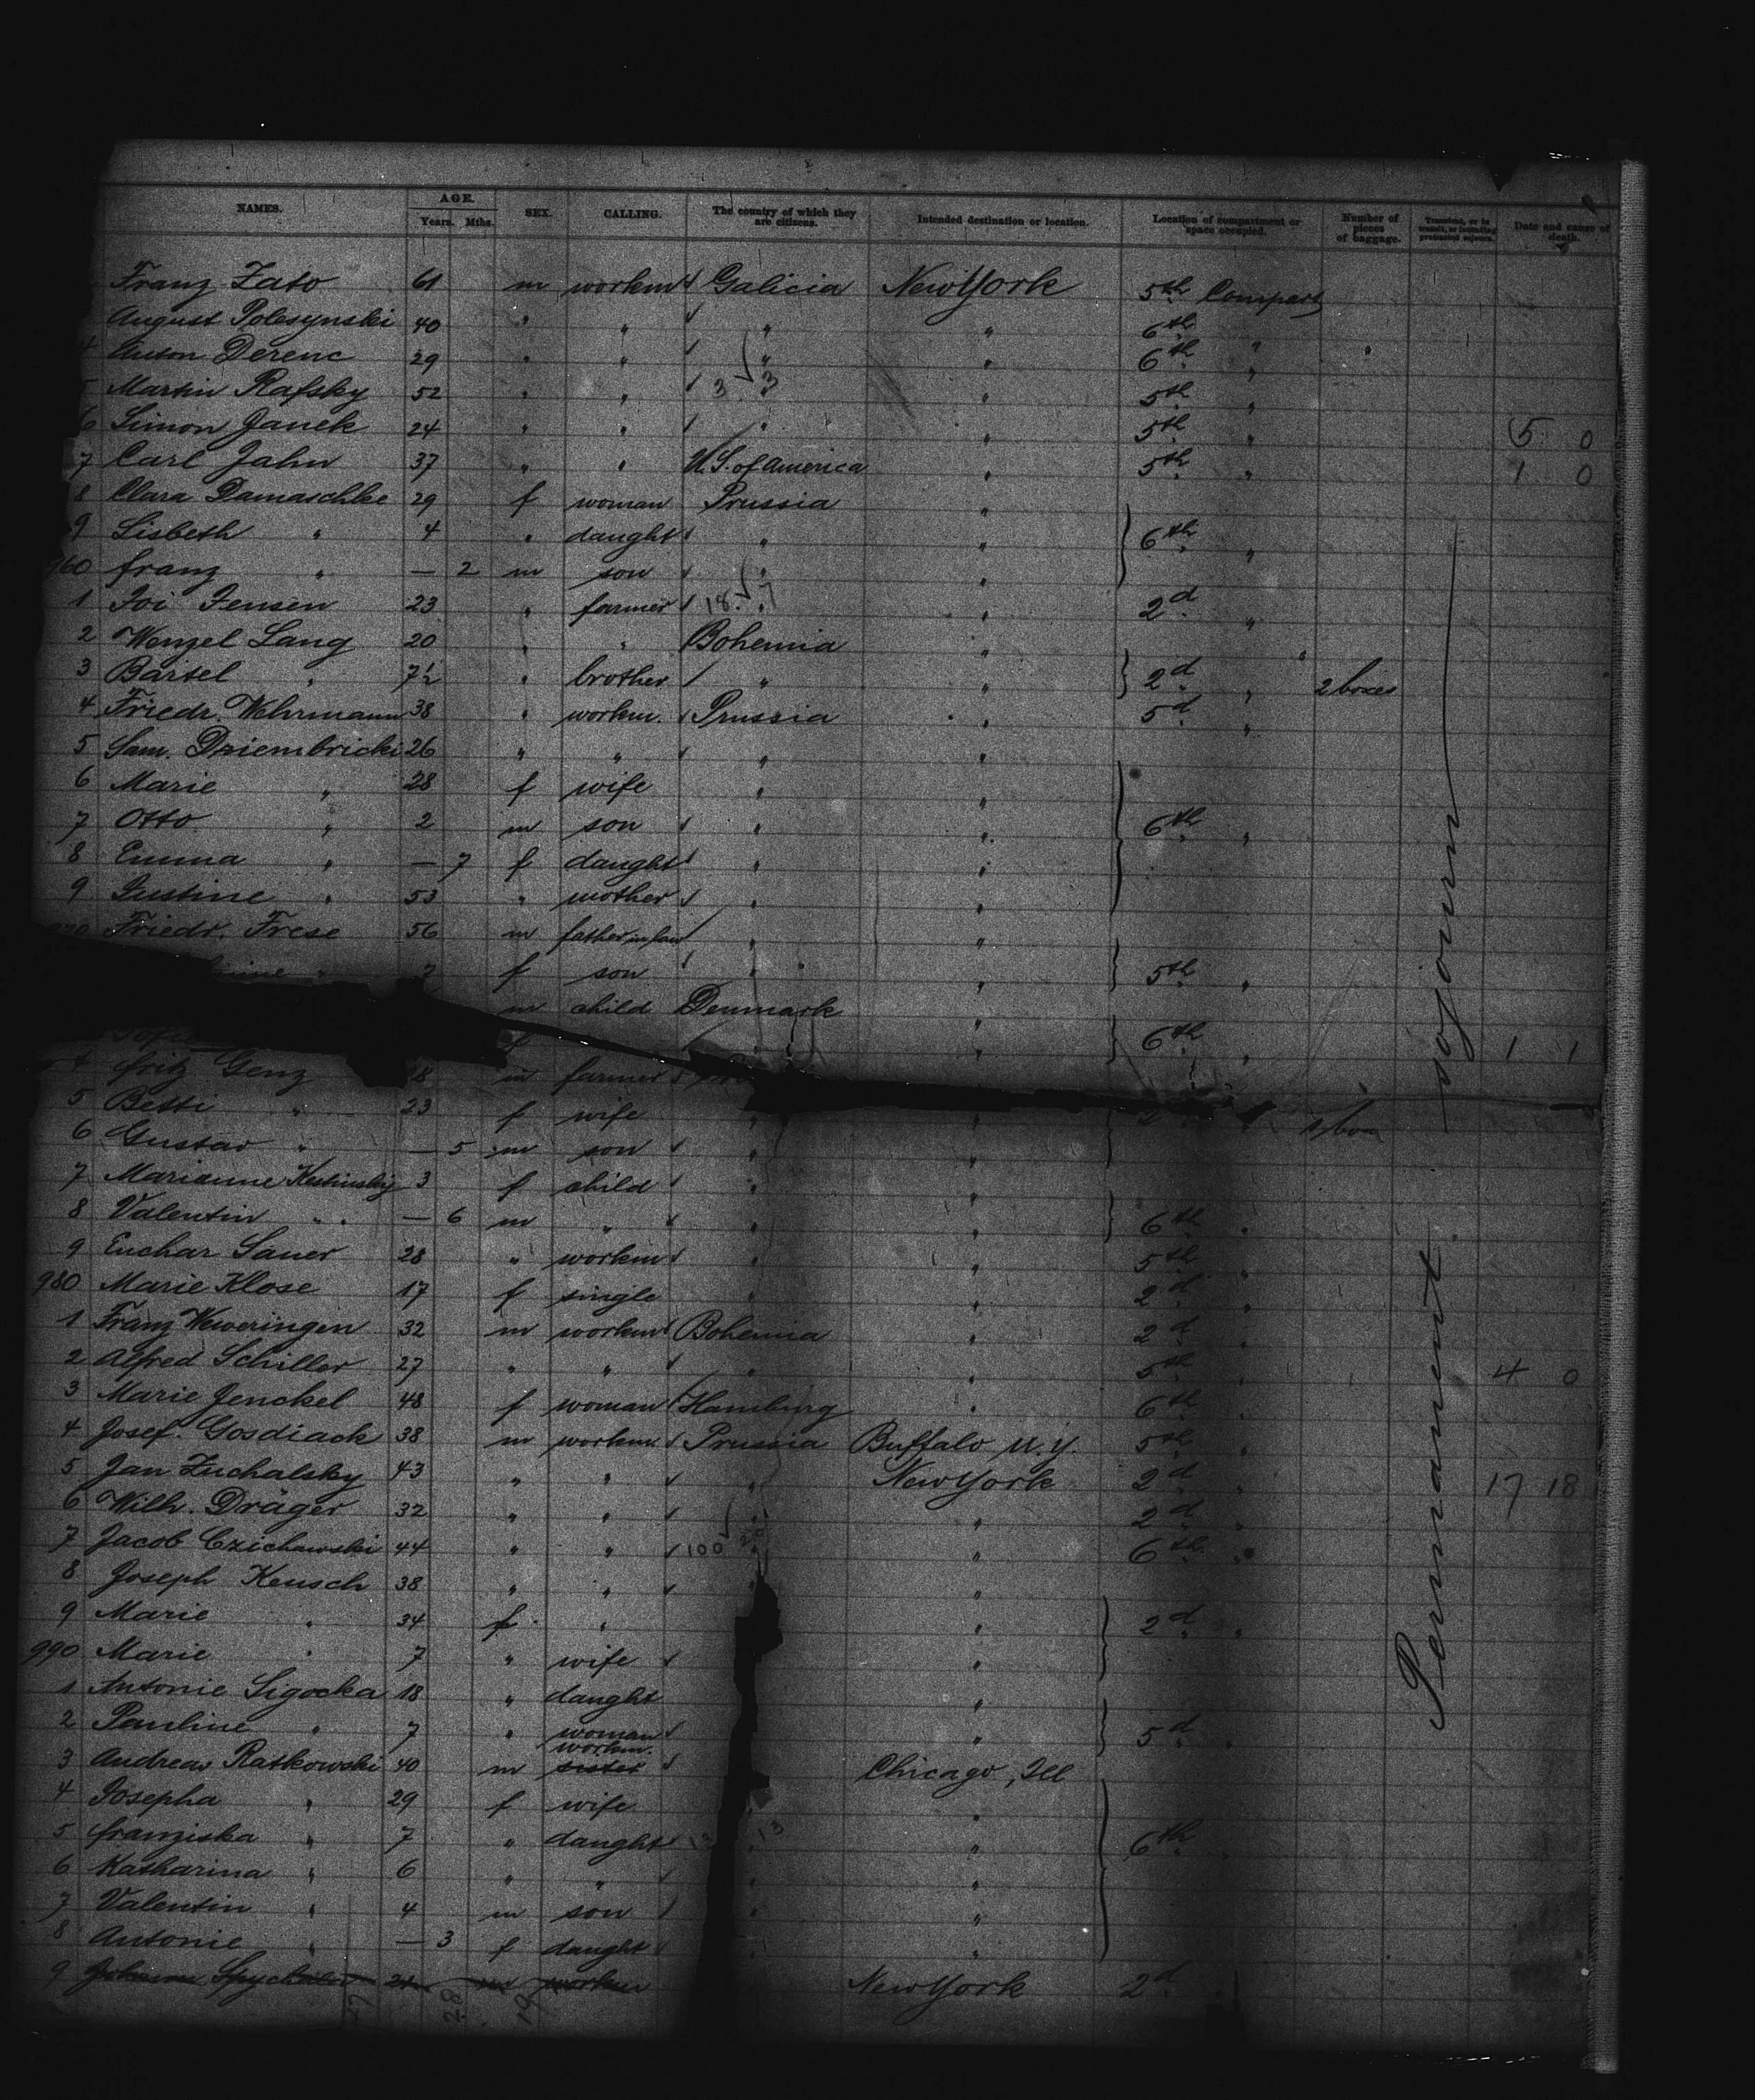 NAMES. AGE. Years. Mths. SEX. CALLING. The country of which they are citizens. Intended destination or location. Location of compartment or space occupied. Number of pieces of baggage. Transient, or in transit, or intending protracted sojourn. Date and cause of death.
Franz Zato 61 m workm Galicia New York 5th Compart
August Polesynski 40 " " " " 6th "
4 Anton Derenc 29 " " " " 6th "
5 Martin Rafsky 52 " " 3 3 " 5th "
6 Simon Janek 24 " " " " 5th " 5 0
7 Carl Jahn 37 " " U.S. of America " 5th " 1 0
8 Clara Damaschke 29 f woman Prussia "
9 Lisbeth " 4 " daught " " 6th "
960 Franz " — 2 m son " "
1 Joi Jensen 23 " farmer 18 7 " 2d "
2 Wenzel Lang 20 " " Bohemia "
3 Bartel " 7½ " brother " " 2d " 2 boxes
4 Friedr. Wehrmann 38 " workm. Prussia " 5d "
5 Sam. Dziembricki 26 " " " "
6 Marie " 28 f wife " "
7 Otto " 2 m son " " 6th "
8 Emma " — 7 f daught " "
9 Justine " 53 " mother " "
970 Friedr. Frese 56 m father in law " "
f son " " 5th "
m child Denmark "
6th " 1 1
4 Fritz Genz 18 m farmer
5 Betti " 23 f wife " " 2 1 box
6 Gustav " — 5 m son " "
7 Marianne Keshinsky 3 f child " "
8 Valentin " — 6 m " " " 6th "
9 Euchar Sauer 28 " workm " " 5th "
980 Marie Klose 17 f single " " 2d "
1 Franz Weweringen 32 m workm Bohemia " 2d "
2 Alfred Schiller 27 " " " " 5th " 4 0
3 Marie Jenckel 48 f woman Hamburg " 6th "
4 Josef. Gosdiack 38 m workm. Prussia Buffalo N.Y. 5th "
5 Jan Zuchalsky 43 " " " New York 2d " 17 18
6 Wilh. Dräger 32 " " " " 2d "
7 Jacob Czichawski 44 " " 100 " 6th "
8 Joseph Keusch 38 " " "
9 Marie " 34 f " " 2d "
990 Marie " 7 " wife "
1 Antonie Sigocka 18 " daught "
2 Pauline " 7 " woman " 5d "
3 Andreas Ratkowski 40 m workm. sister Chicago, Ill
4 Josepha " 29 f wife "
5 Franziska " 7 " daught 13 " 6th "
6 Katharina " 6 " " "
7 Valentin " 4 m son "
8 Antonie " — 3 f daught "
9 21 m workm New York 2d
27 28 19
Permanent sojourn